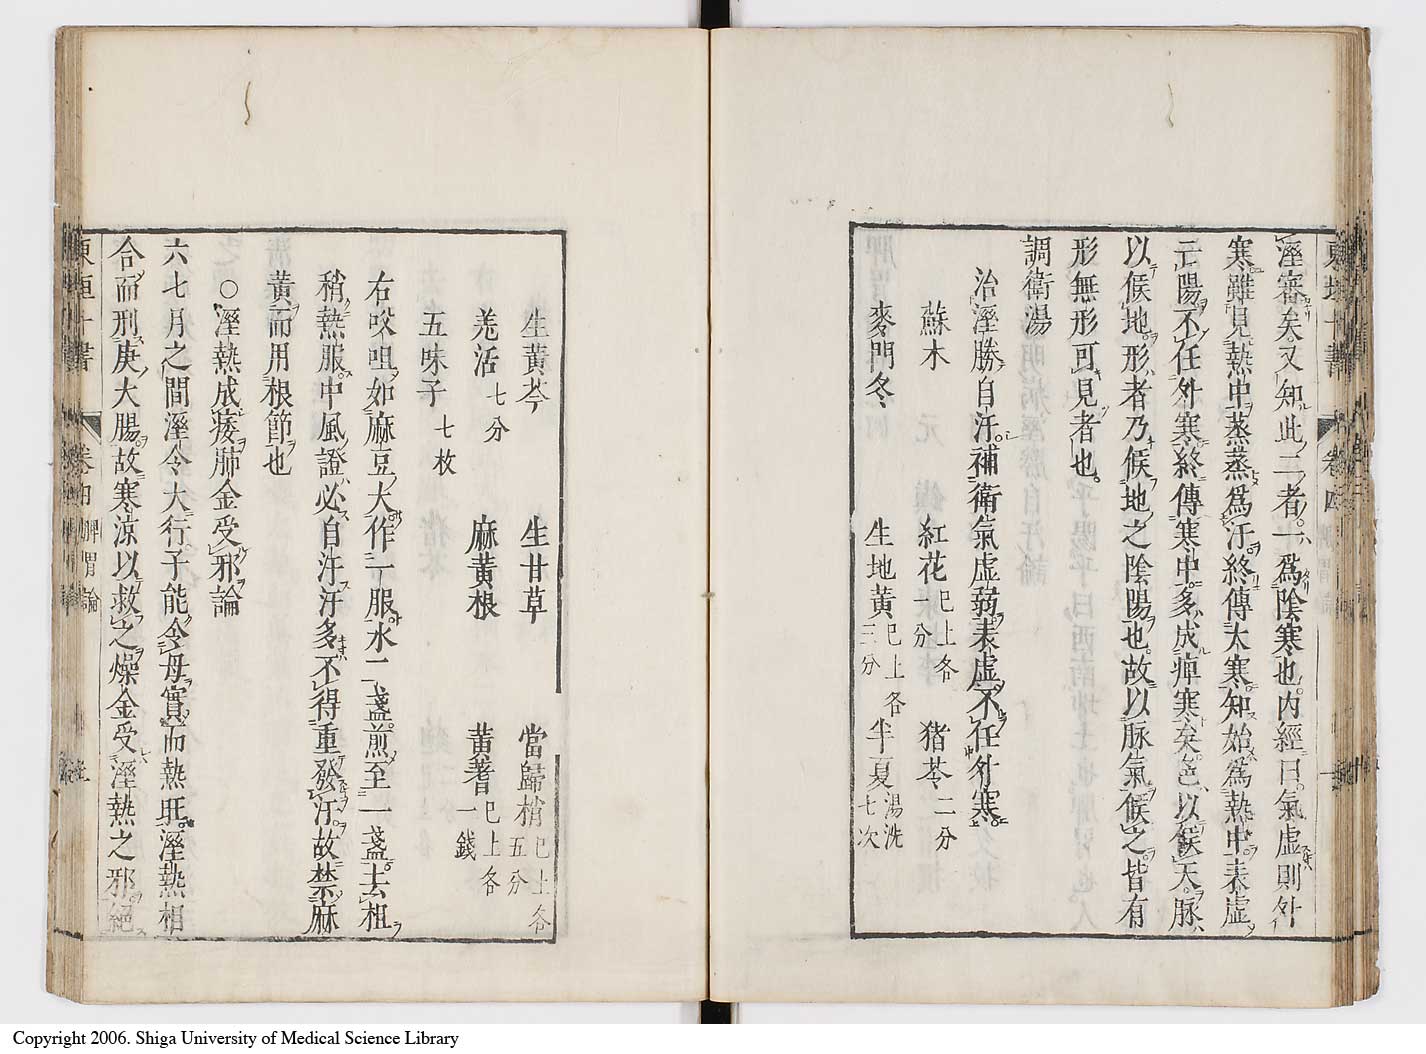 濕審矣又知此二者一爲陰寒也内經曰氣虛則外
寒雖見熱中蒸蒸爲汗終傳大寒知始爲熱中表虛
亡陽不任外寒終傳寒中多成痺寒矣色以候天脉
以候地形者乃候地之陰陽也故以脉氣候之皆有
形無形可見者也
調衛湯
治濕勝自汗補衛氣虛弱表虛不任外寒
蘇木 紅花已上各一分 猪苓二分
麥門冬 生地黄已上各三分 半夏湯洗七次
生黄芩 生甘草 當歸梢已上各五分
羗活七分 麻黄根 黄蓍已上各一錢
五味子七枚
右㕮咀如麻豆大作一服水二盞煎至一盞去柤
稍熱服中風證必自汗汗多不得重發汗故禁麻
黄而用根節也
○濕熱成痿肺金受邪論
六七月之間濕令大行子能令母實而熱旺濕熱相
合而刑庚大腸故寒涼以救之燥金受濕熱之邪絕
東垣十書 卷四 脾胃論
Copyright 2006. Shiga University of Medical Science Library